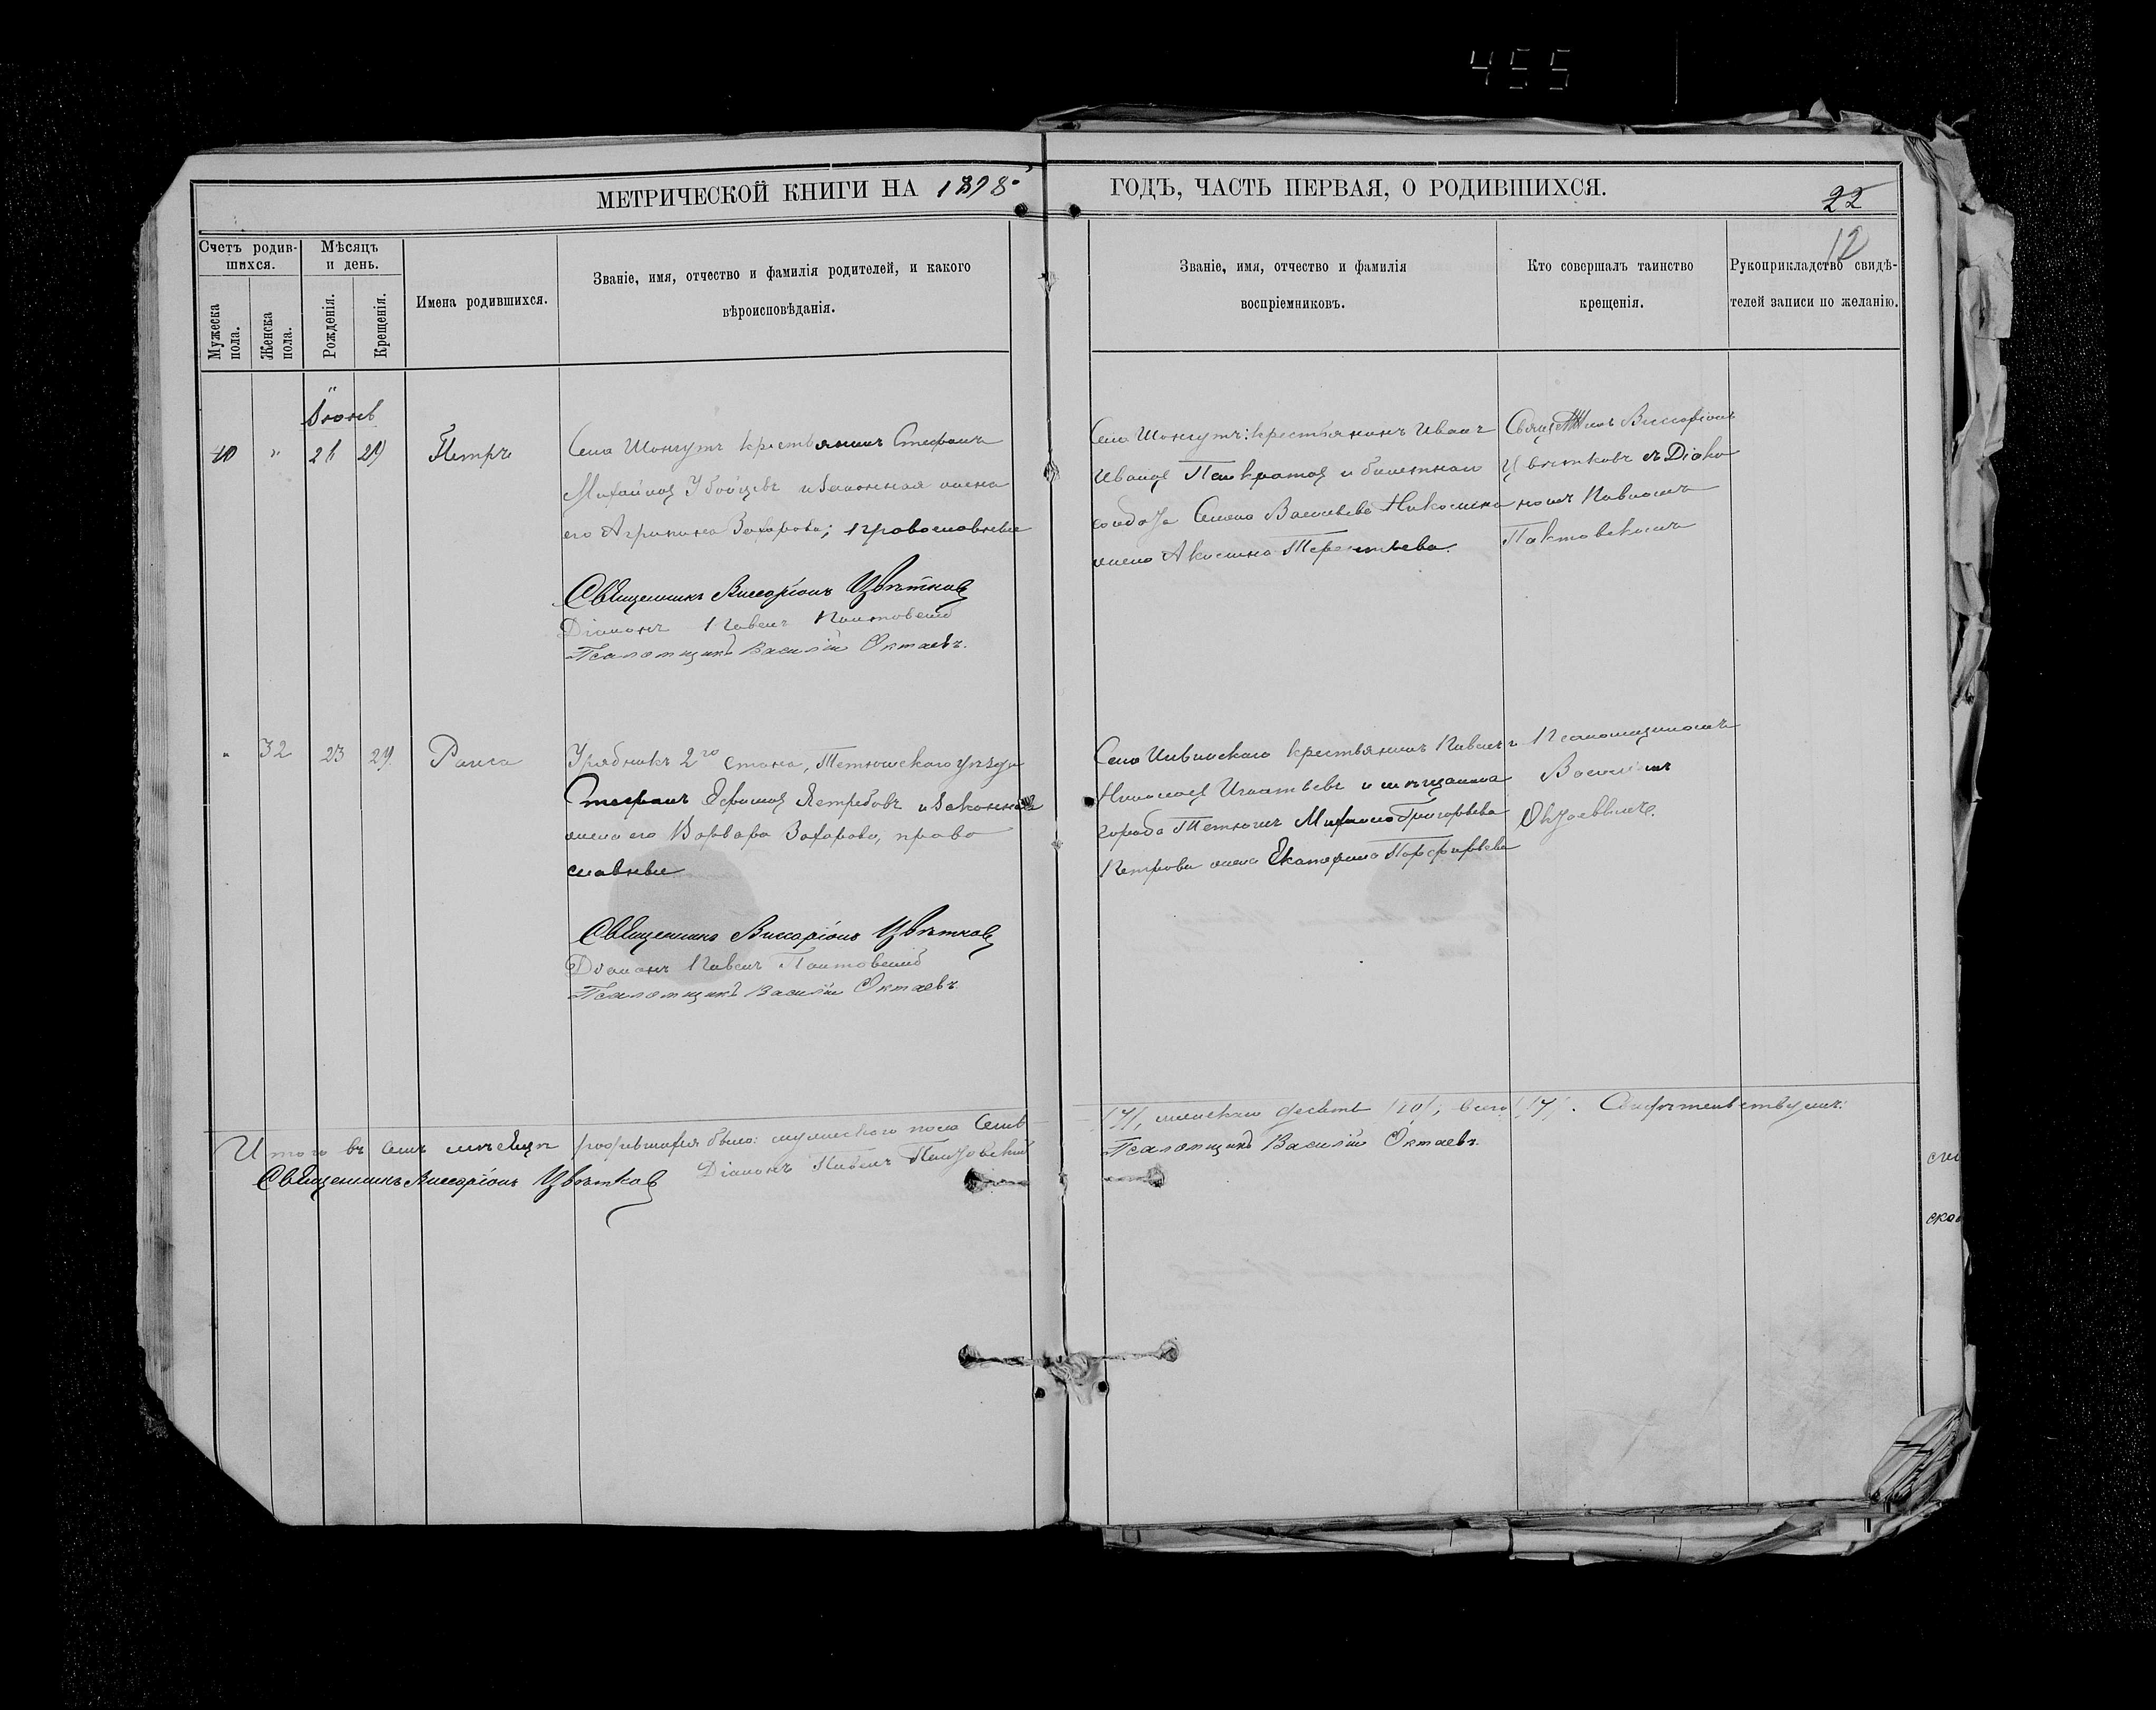 455
МЕТРИЧЕСКОЙ КНИГИ НА 1898
ГОДЪ, ЧАСТЬ ПЕРВАЯ, О РОДИВШИХСЯ.
22
12
Счетъ родив-
шихся.
Мужеска
пола.
Женска
пола.
Мѣсяцъ
и день.
Рожденія.
Крещенія.
Имена родившихся.
Званіе, имя, отчество и фамилія родителей, и какого
вѣроисповѣданія.
Званіе, имя, отчество и фамилія
воспріемниковъ.
Кто совершалъ таинство
крещенія.
Рукоприкладство свидѣ-
телей записи по желанію.
Іюнь
21 29
Петръ
Села Шонгутъ крестьянинъ Стефанъ
Михайловъ и законная жена
его Агрипина Захарова; православные
Священникъ Виссаріонъ Цвѣтковъ
Діаконъ Павелъ
Псаломщикъ Василій Октаевъ.
Села Шонгутъ: крестьянинъ Иванъ
Ивановъ Панкратовъ и билетнаго
солдата Семена Васильева
жена Акилина Терентьева.
Виссаріонъ
Цвѣтковъ съ Діако
номъ Павломъ
" 32 23 29
Раиса
Урядникъ 2го стана, Тетюшскаго уѣзда
Стефанъ Ефимовъ Ястребовъ и законная
жена его Варвара Захарова, право
славные
Священникъ Виссаріонъ Цвѣтковъ
Діаконъ Павелъ
Псаломщикъ Василій Октаевъ.
Села крестьянинъ Павелъ
Николаевъ Игнатьевъ и мѣщанина
города Тетюшъ Михаила Григорьева
Петрова жена Екатерина Порфирьева
Псаломщикомъ
Василіемъ
Итого въ семъ мѣсяцѣ родившихся было: мужескаго пола семь
/7/, женскаго десять /10/, всего /17/. Свидѣтельствуемъ:
Священникъ Виссаріонъ Цвѣтковъ Діаконъ Павелъ
Псаломщикъ Василій Октаевъ.